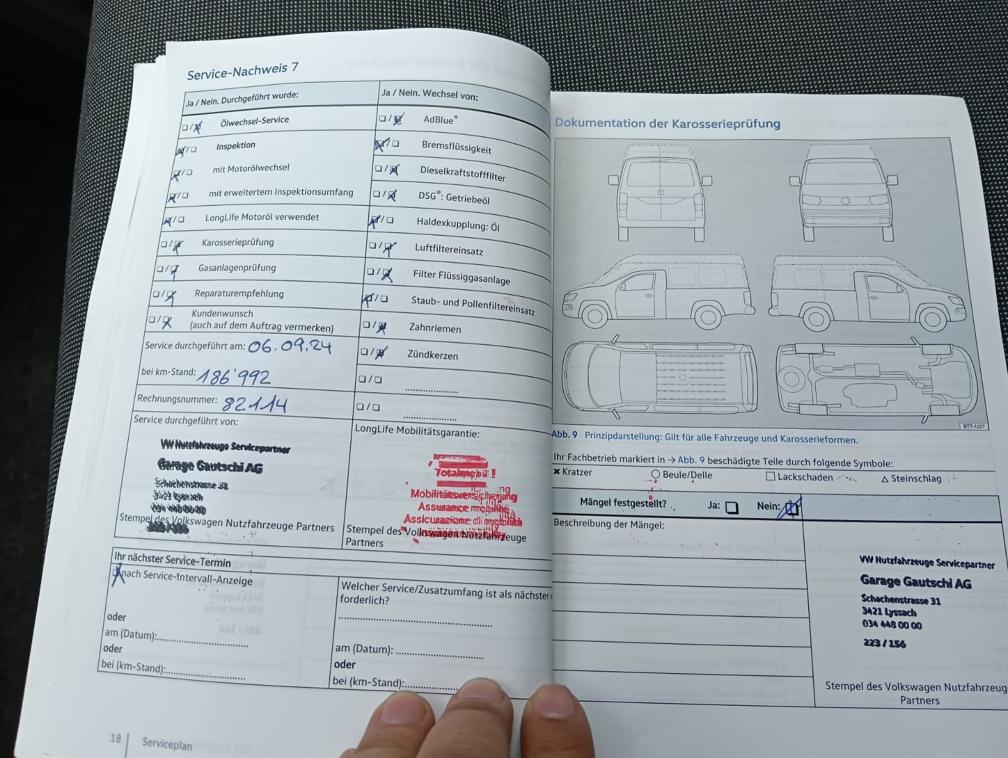 Service-Nachweis 7
Ja / Nein. Durchgeführt wurde:
Ölwechsel-Service
Inspektion
mit Motorölwechsel
mit erweitertem Inspektionsumfang
LongLife Motoröl verwendet
Karosserieprüfung
Gasanlagenprüfung
Reparaturempfehlung
Kundenwunsch
(auch auf dem Auftrag vermerken)
Service durchgeführt am: 06.09.24
bei km-Stand: 186'992
Rechnungsnummer: 82114
Service durchgeführt von:
VW Nutzfahrzeuge Servicepartner
Garage Gautschi AG
Schachenstrasse 31
3421 Lyssach
034 448 00 00
Stempel des Volkswagen Nutzfahrzeuge Partners
Ja / Nein. Wechsel von:
AdBlue®
Bremsflüssigkeit
Dieselkraftstofffilter
DSG®: Getriebeöl
Haldexkupplung: Öl
Luftfiltereinsatz
Filter Flüssiggasanlage
Staub- und Pollenfiltereinsatz
Zahnriemen
Zündkerzen
LongLife Mobilitätsgarantie:
Totalmobil!
Mobilitätsversicherung
Assurance mobilité
Assicurazione di mobilità
Stempel des Volkswagen Nutzfahrzeuge
Partners
Ihr nächster Service-Termin
nach Service-Intervall-Anzeige
oder
am (Datum):
oder
bei (km-Stand):
Welcher Service/Zusatzumfang ist als nächster
forderlich?
am (Datum):
oder
bei (km-Stand):
18 Serviceplan
Dokumentation der Karosserieprüfung
BTT-1227
Abb. 9 Prinzipdarstellung: Gilt für alle Fahrzeuge und Karosserieformen.
Ihr Fachbetrieb markiert in → Abb. 9 beschädigte Teile durch folgende Symbole:
Kratzer
Beule/Delle
Lackschaden
Steinschlag
Mängel festgestellt? Ja: Nein:
Beschreibung der Mängel:
VW Nutzfahrzeuge Servicepartner
Garage Gautschi AG
Schachenstrasse 31
3421 Lyssach
034 448 00 00
223 / 156
Stempel des Volkswagen Nutzfahrzeug
Partners